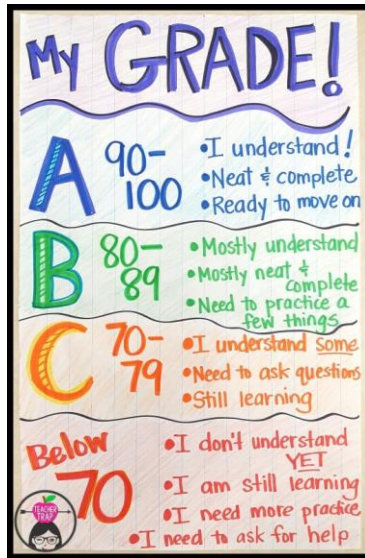 My GRADE!
A 90-100
•I understand!
•Neat & complete
•Ready to move on
B 80-89
•Mostly understand
•Mostly neat &
complete
•Need to practice a
few things
C 70-79
•I understand some
•Need to ask questions
•Still learning
Below
70
•I don't understand
YET
•I am still learning
•I need more practice
•I need to ask for help
TEACHER
TRAP